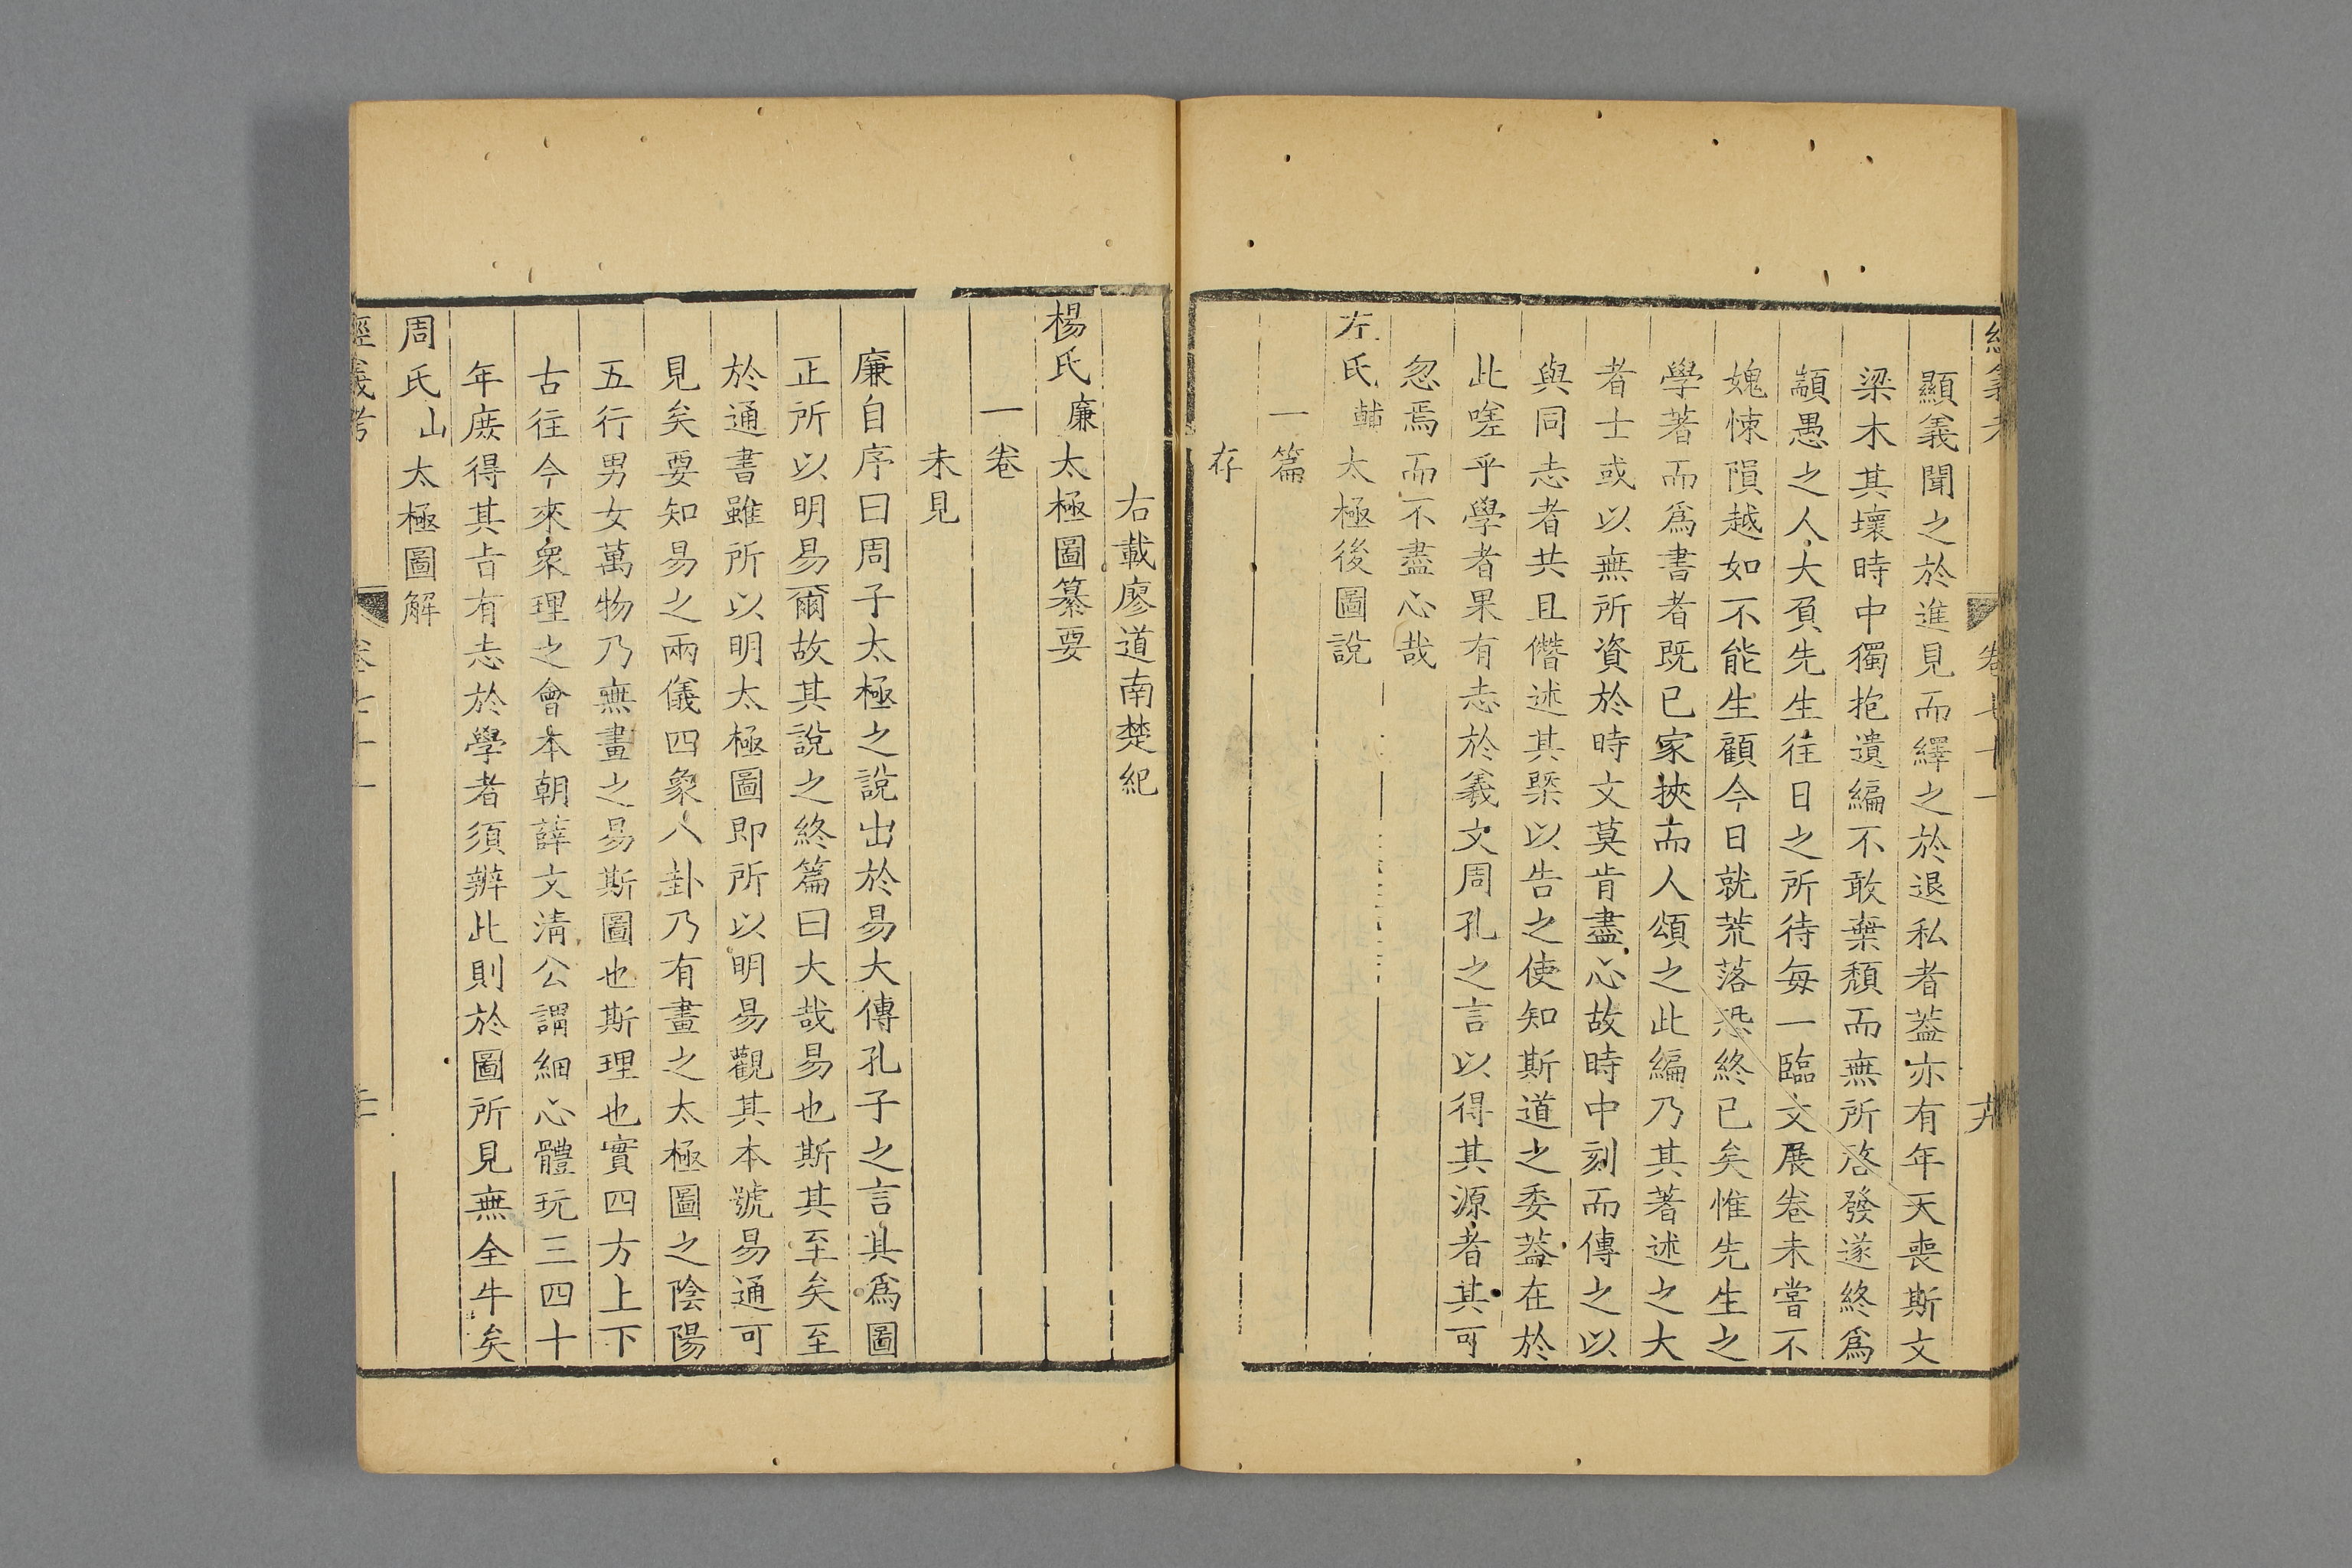 顯義聞之於進見而繹之於退私者葢亦有年天喪斯文
梁木其壞時中獨抱遺編不敢棄頹而無所啓發遂終爲
顓愚之人大負先生往日之所待每一臨文展卷未嘗不
媿悚隕越如不能生顧今日就荒落恐終已矣惟先生之
學著而爲書者既已家挾而人頌之此編乃其著述之大
者士或以無所資於時文莫肯盡心故時中刻而傳之以
與同志者共且僭述其槩以告之使知斯道之委葢在於
此嗟乎學者果有志於羲文周孔之言以得其源者其可
忽焉而不盡心哉
左氏輔太極後圖說
一篇
存
右載廖道南楚紀
楊氏廉太極圖纂要
一卷
未見
廉自序曰周子太極之說出於易大傳孔子之言其爲圖
正所以明易爾故其說之終篇曰大哉易也斯其至矣至
於通書雖所以明太極圖即所以明易觀其本號易通可
見矣要知易之兩儀四象八卦乃有畫之太極圖之陰陽
五行男女萬物乃無畫之易斯圖也斯理也實四方上下
古往今來衆理之會本朝薛文清公謂細心體玩三四十
年庶得其旨有志於學者須辨此則於圖所見無全牛矣
周氏山太極圖解
經義考 卷七十一